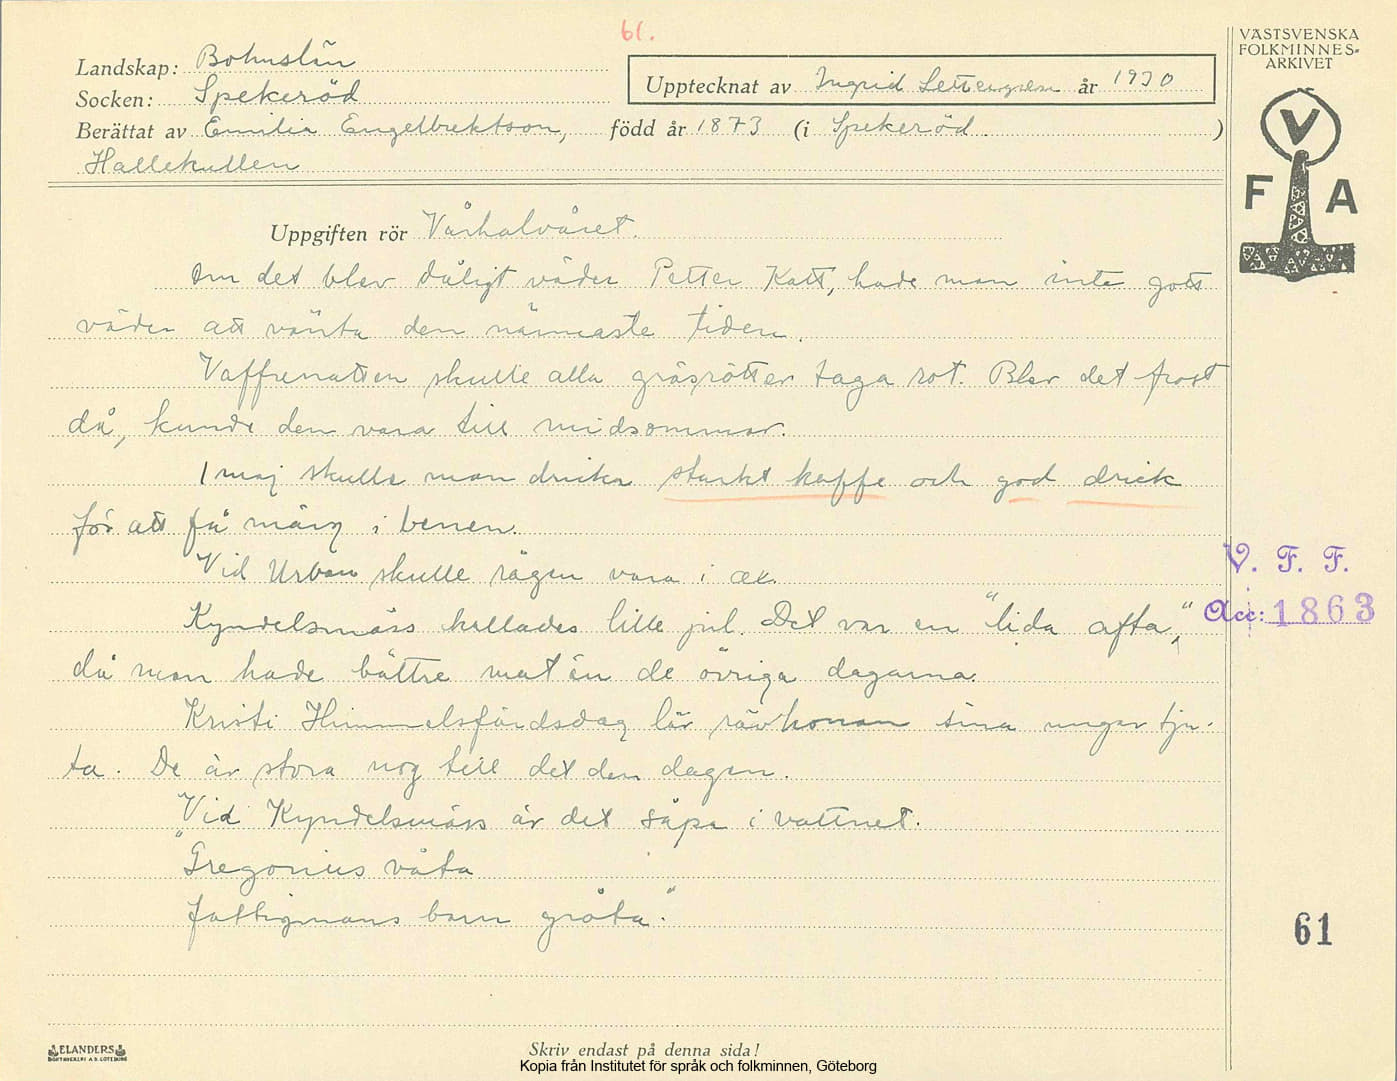 61.
VÄSTSVENSKA
FOLKMINNES-
ARKIVET
Landskap: Bohuslän
Upptecknat av Ingrid år 1930
Socken: Spekeröd
Berättat av Emilia Engelbrektson, född år 1873 (i Spekeröd.)
Hallekullen
V
F A
Uppgiften rör Vårhalvåret.
Om det blev dåligt väder Petter Katt, hade man inte gott
väder att vänta den närmaste tiden.
Vaffrenatten skulle alla gräsrötter taga rot. Blev det frost
då, kunde den vara till midsommar.
1 maj skulle man dricka starkt kaffe och god drick
för att få märg i benen.
Vid Urban skulle rågen vara i ax.
Kyndelsmäss kallades lille jul. Det var en "lida afta",
då man hade bättre mat än de övriga dagarna.
Kristi Himmelsfärdsdag lär rävhonan sina ungar tju-
ta. De är stora nog till det den dagen.
Vid Kyndelsmäss är det såpa i vattnet.
"Gregorius våta
fattigmans barn gråta."
V. F. F.
Acc: 1863
61
ELANDERS
BOKTRYCKERI A.B. GÖTEBORG
Skriv endast på denna sida!
Kopia från Institutet för språk och folkminnen, Göteborg